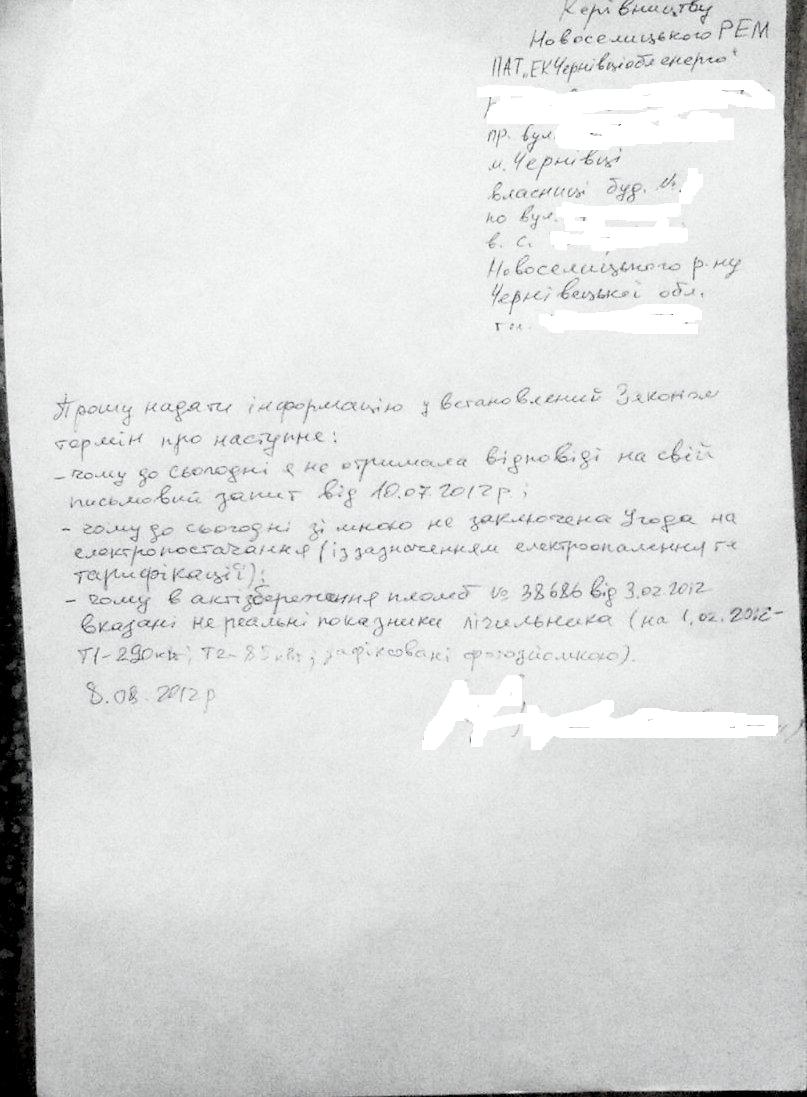 Керівництву
Новоселицького РЕМ
ПАТ „ЕК Чернівціобленерго"
пр. вул.
м. Чернівці
власниці буд. №
по вул.
в с.
Новоселицького р-ну
Чернівецької обл.
тел.
Прошу надати інформацію у встановлений Законом
термін про наступне:
- чому до сьогодні я не отримала відповіді на свій
письмовий запит від 10.07.2012р;
- чому до сьогодні зі мною не заключена Угода на
електропостачання (із зазначенням електроопалення та
тарифікації);
- чому в акті збереження пломб № 38686 від 3.02.2012
вказані не реальні показники лічильника (на 1.02.2012-
Т1-290кВт; Т2-85кВт; зафіксовані фотозйомкою).
8.08.2012р